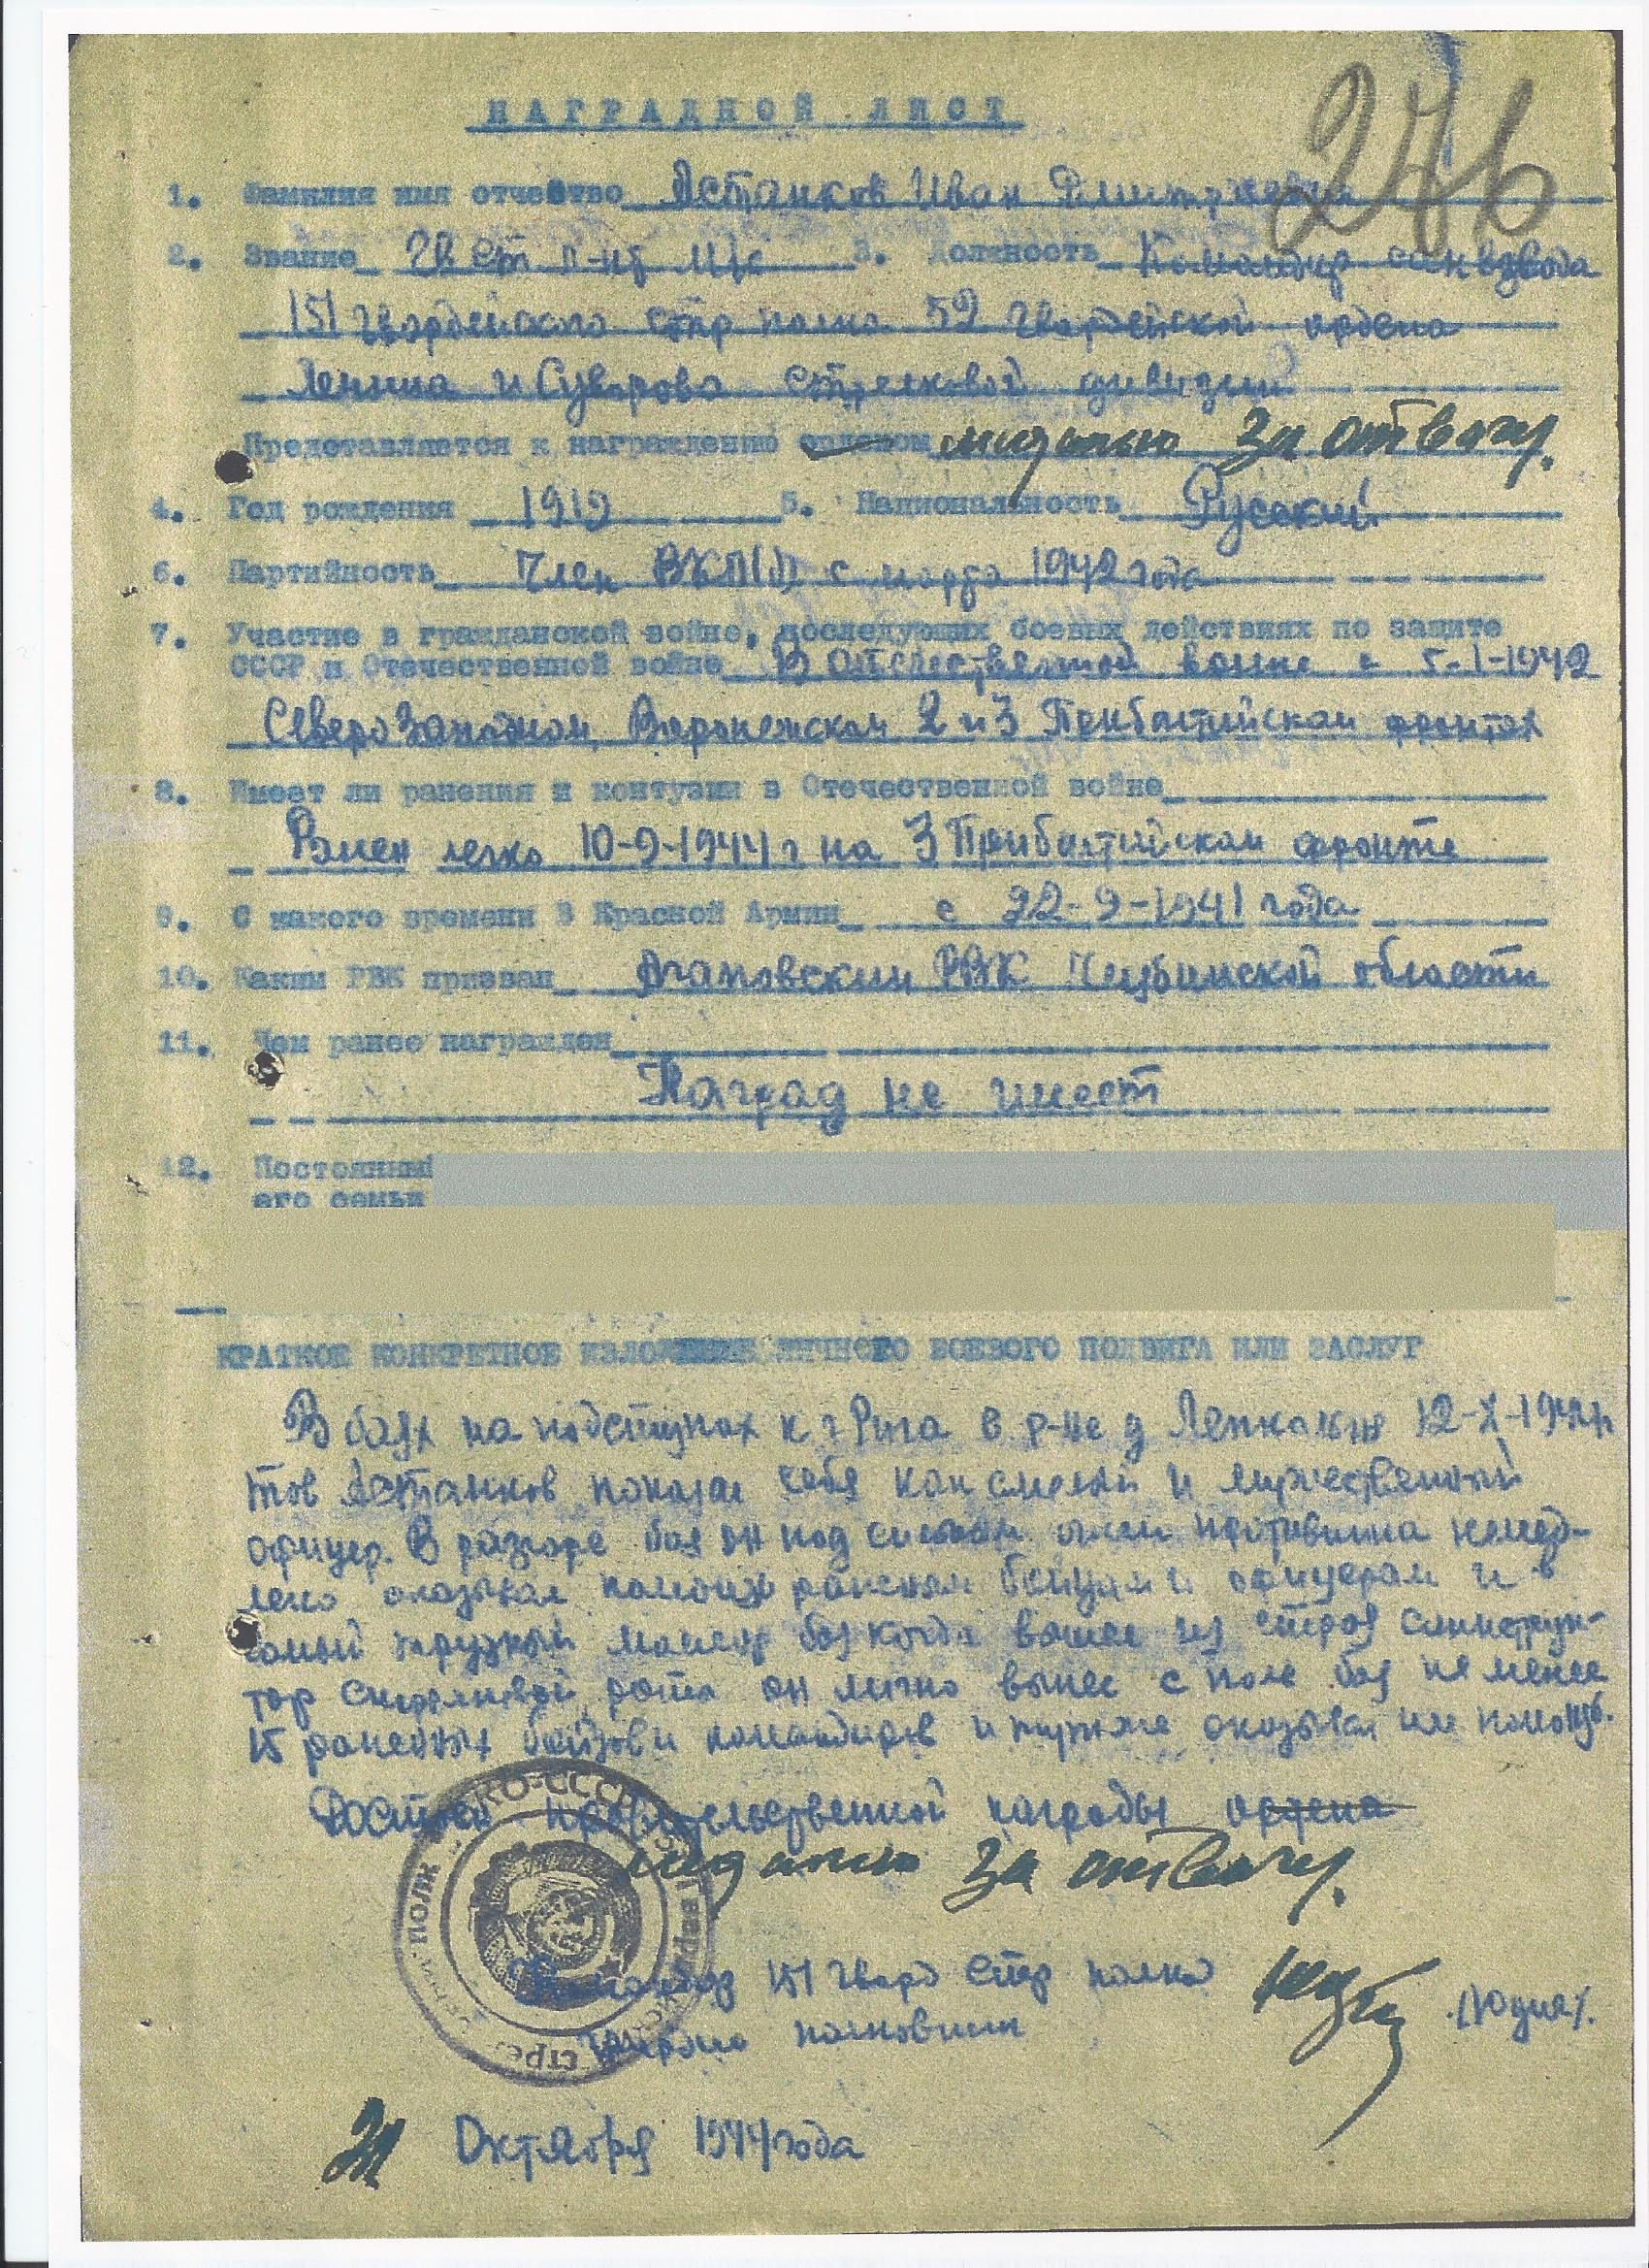 276
НАГРАДНОЙ ЛИСТ
1. Фамилия имя отчество Астанков Иван Дмитриевич
2. Звание Гв ст л-нт м/с 3. Должность Командир санвзвода
151 Гвардейского стр полка 52 Гвардейской ордена
Ленина и Суворова стрелковой дивизии
Представляется к награждению орденом медалью За отвагу.
4. Год рождения 1919 5. Национальность Русский
6. Партийность Член ВКП(б) с марта 1942 года
7. Участие в гражданской войне, последующих боевых действиях по защите
СССР и Отечественной войне В Отечественной войне с 5-1-1942
Северо Западном, Воронежском 2 и 3 Прибалтийском фронтах
8. Имеет ли ранения и контузии в Отечественной войне
Ранен легко 10-9-1944 г на 3 Прибалтийском фронте
9. С какого времени в Красной Армии с 22-9-1941 года
10. Каким РВК призван Агаповским РВК Челябинской области
11. Чем ранее награжден
Наград не имеет
12. Постоянный
его семьи
КРАТКОЕ КОНКРЕТНОЕ ИЗЛОЖЕНИЕ ЛИЧНОГО БОЕВОГО ПОДВИГА ИЛИ ЗАСЛУГ
В боях на подступах к г Рига в р-не д 12-X-1944г
тов Астанков показал себя как смелый и мужественный
офицер. В разгаре боя он под сильным огнем противника немед-
лено оказывал помощь раненым бойцам и офицерам и в
самый трудный момент боя когда вышел из строя санинструк-
тор стрелковой роты он лично вынес с поля боя не менее
15 раненых бойцов и командиров и тутже оказывал им помощь.
Достоин правительственной награды ордена
медалью За отвагу.
Командир 151 Гвард Стр полка
гвардии полковник /Юдич/.
Октября 1944 года